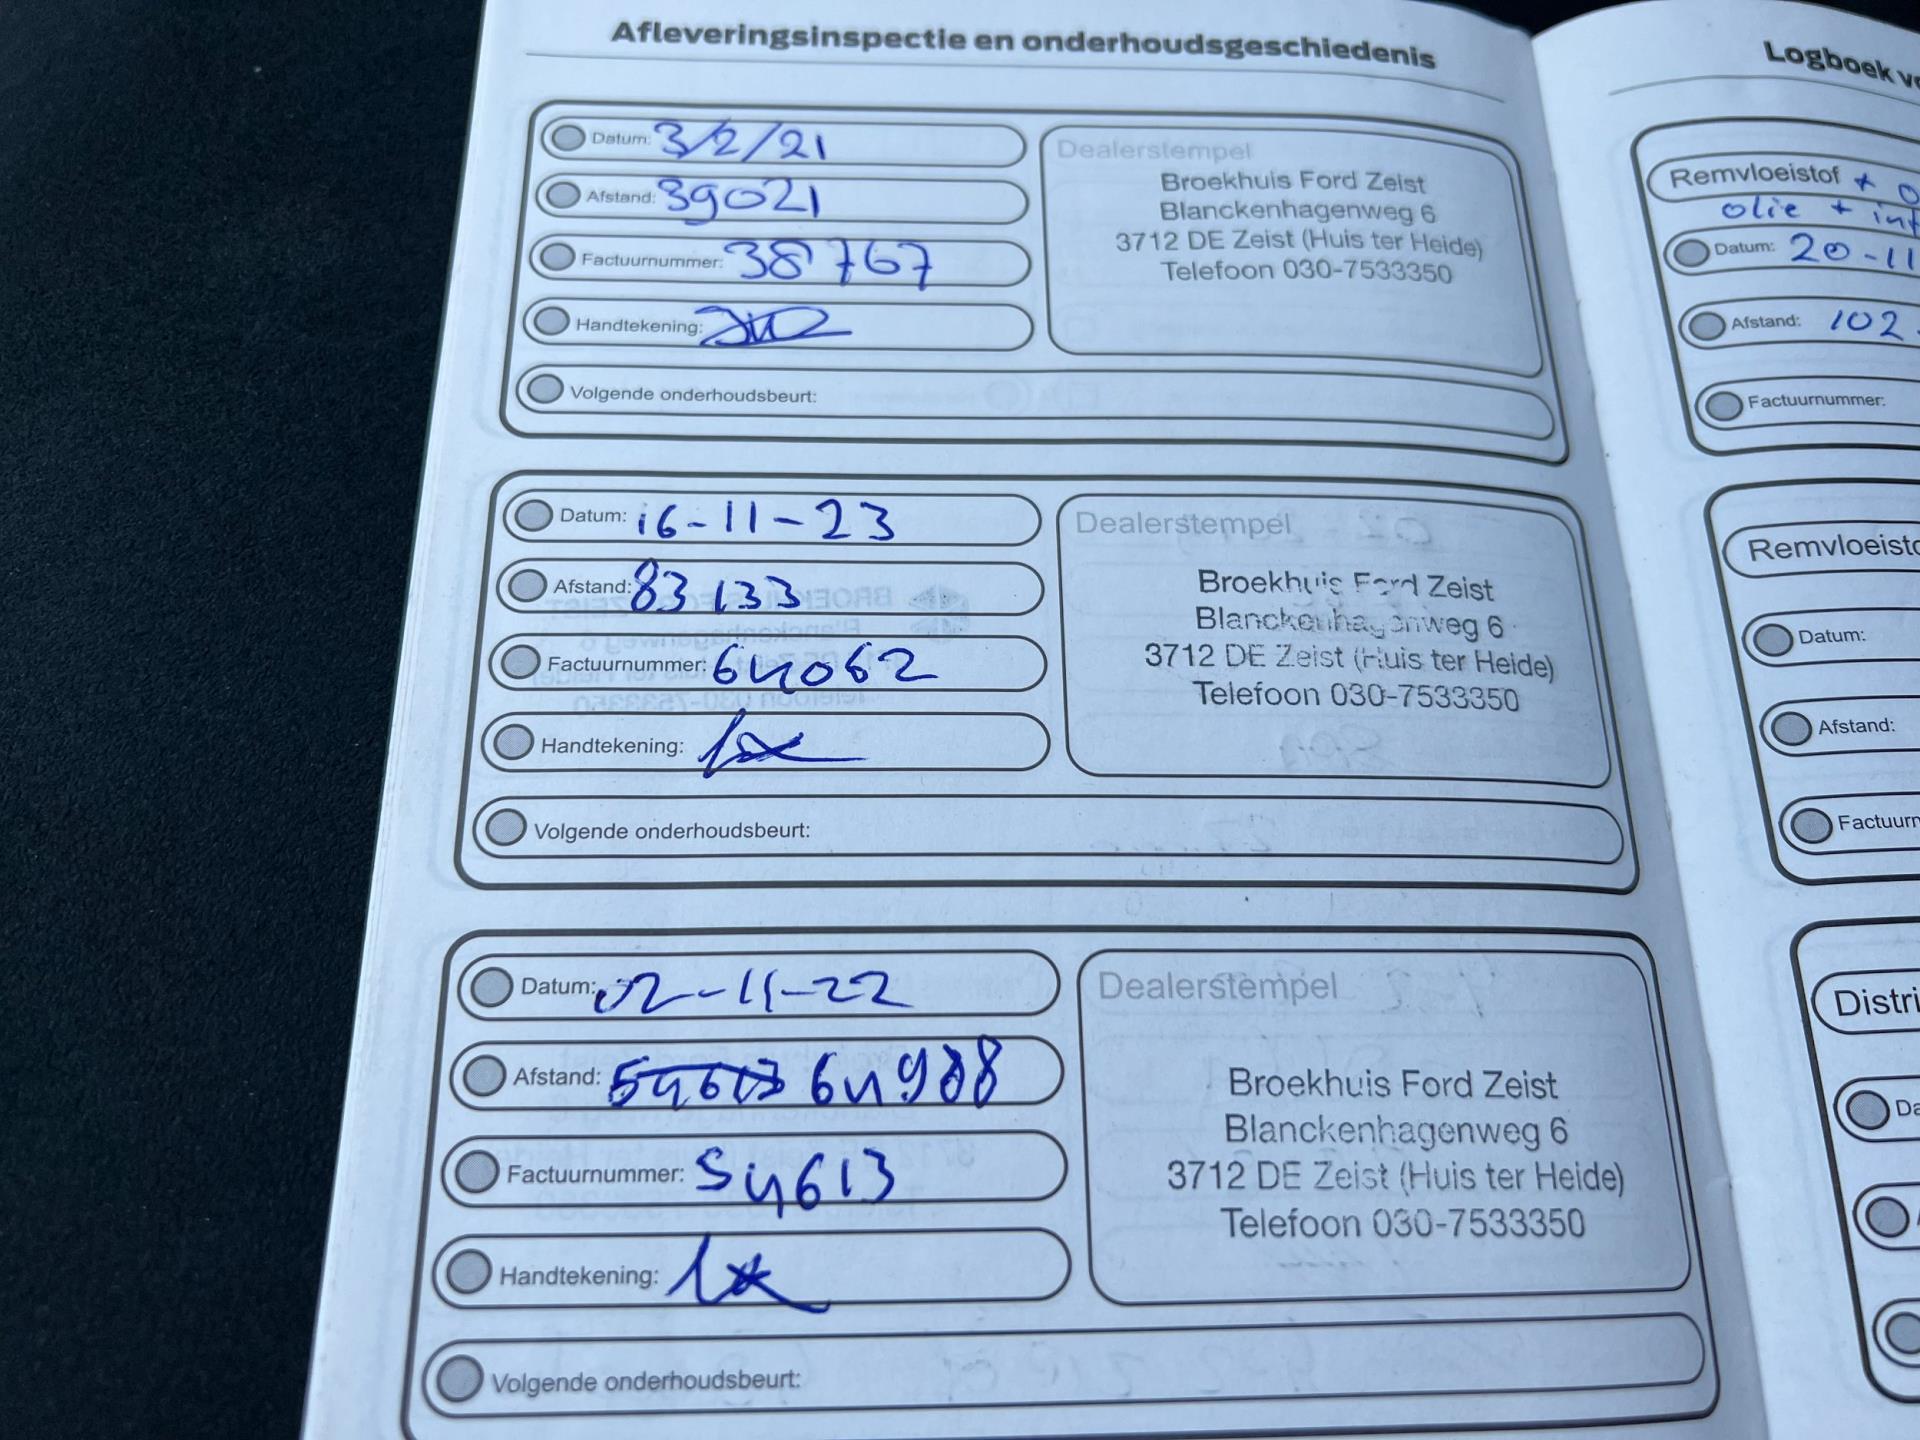 Afleveringsinspectie en onderhoudsgeschiedenis
Datum: 3/2/21
Afstand: 39021
Factuurnummer: 38767
Handtekening:
Volgende onderhoudsbeurt:
Dealerstempel
Broekhuis Ford Zeist
Blanckenhagenweg 6
3712 DE Zeist (Huis ter Heide)
Telefoon 030-7533350
Datum: 16-11-23
Afstand: 83133
Factuurnummer: 64062
Handtekening:
Volgende onderhoudsbeurt:
Dealerstempel
Broekhuis Ford Zeist
Blanckenhagenweg 6
3712 DE Zeist (Huis ter Heide)
Telefoon 030-7533350
Datum: 02-11-22
Afstand: 54613 64988
Factuurnummer: 54613
Handtekening:
Volgende onderhoudsbeurt:
Dealerstempel
Broekhuis Ford Zeist
Blanckenhagenweg 6
3712 DE Zeist (Huis ter Heide)
Telefoon 030-7533350
Logboek
Remvloeistof +
olie +
Datum: 20-11
Afstand: 102
Factuurnummer:
Datum:
Afstand: